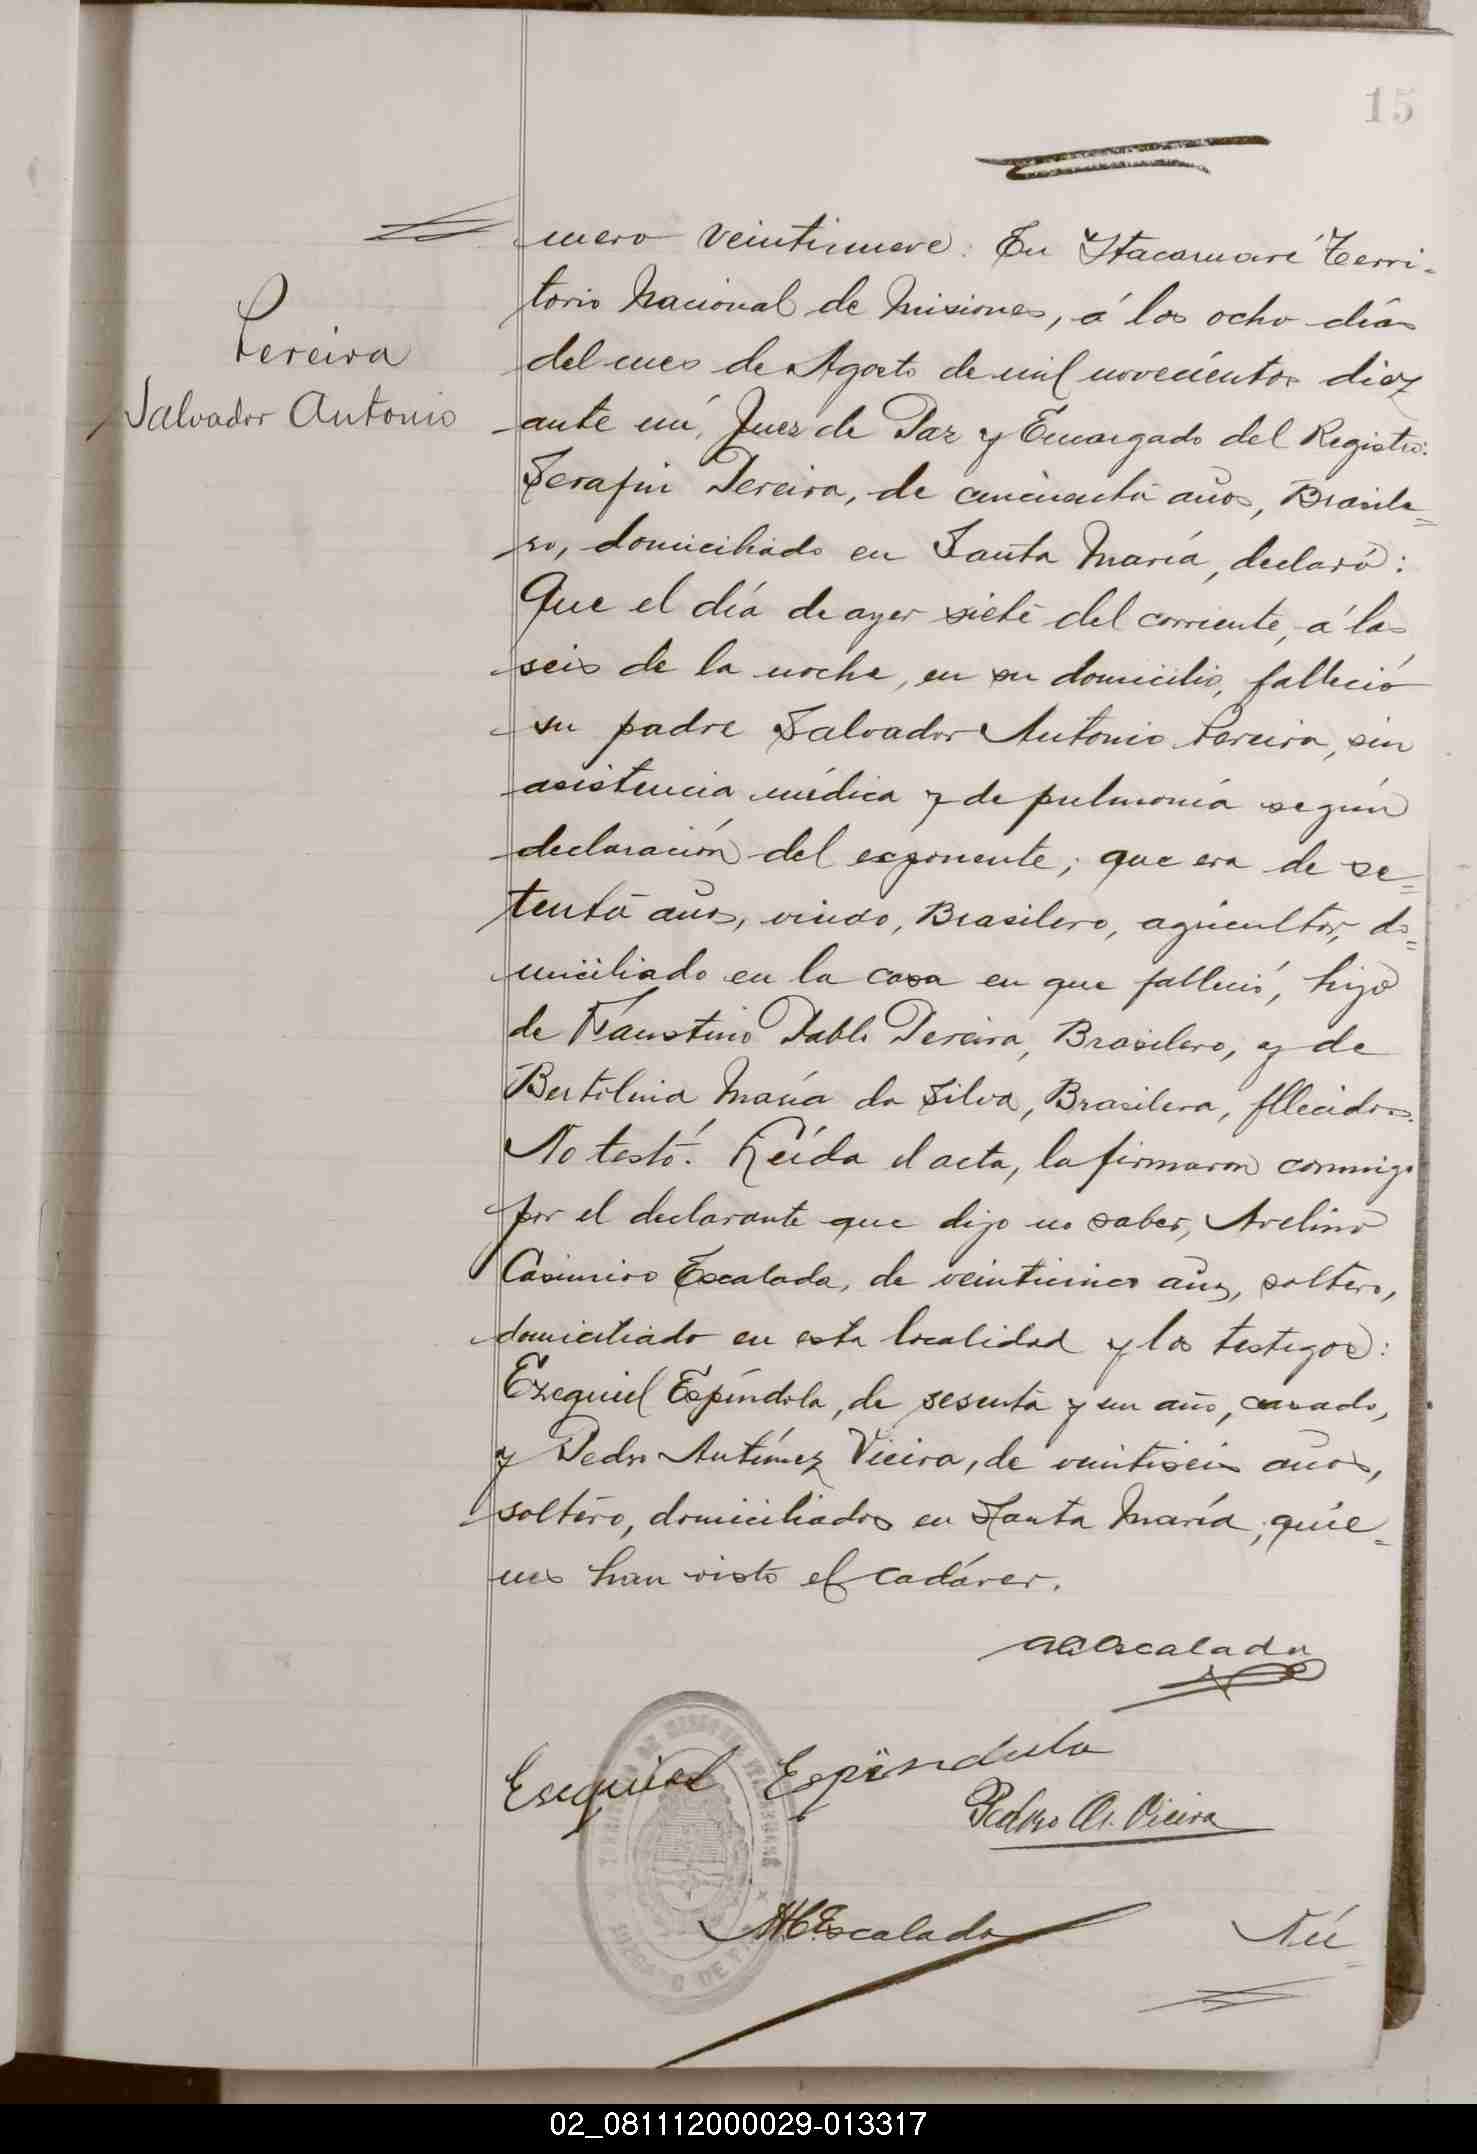 15
Pereira
Salvador Antonio
mero veintinueve: En Itacaruaré Terri-
torio Nacional de Misiones, á los ocho días
del mes de Agosto de mil novecientos diez
ante mí, Juez de Paz y Encargado del Registro:
Serafin Pereira, de cincuenta años, Brasile=
ro, domiciliado en Santa María, declaró:
Que el día de ayer siete del corriente, á las
seis de la noche, en su domicilio, falleció
su padre Salvador Antonio Pereira, sin
asistencia médica y de pulmonía según
declaración del exponente; que era de se=
tenta años, viudo, Brasilero, agricultor, do=
miciliado en la casa en que falleció, hijo
de Faustino Pablo Pereira, Brasilero, y de
Bertolina María da Silva, Brasilera, fllecidos.
No testó. Leída el acta, la firmaron conmigo
por el declarante que dijo no saber, Avelino
Casimiro Escalada, de veinticinco años, soltero,
domiciliado en esta localidad y los testigos:
Ezequiel Espíndola, de sesenta y un año, casado,
y Pedro Antúnez Vieira, de veintiseis años,
soltero, domiciliados en Santa María, quie=
nes han visto el cadáver.
Escalada
Esequiel Espindula
Pedro A. Vieira
Escalada
Nú=
JUZGADO DE PAZ
02_081112000029-013317